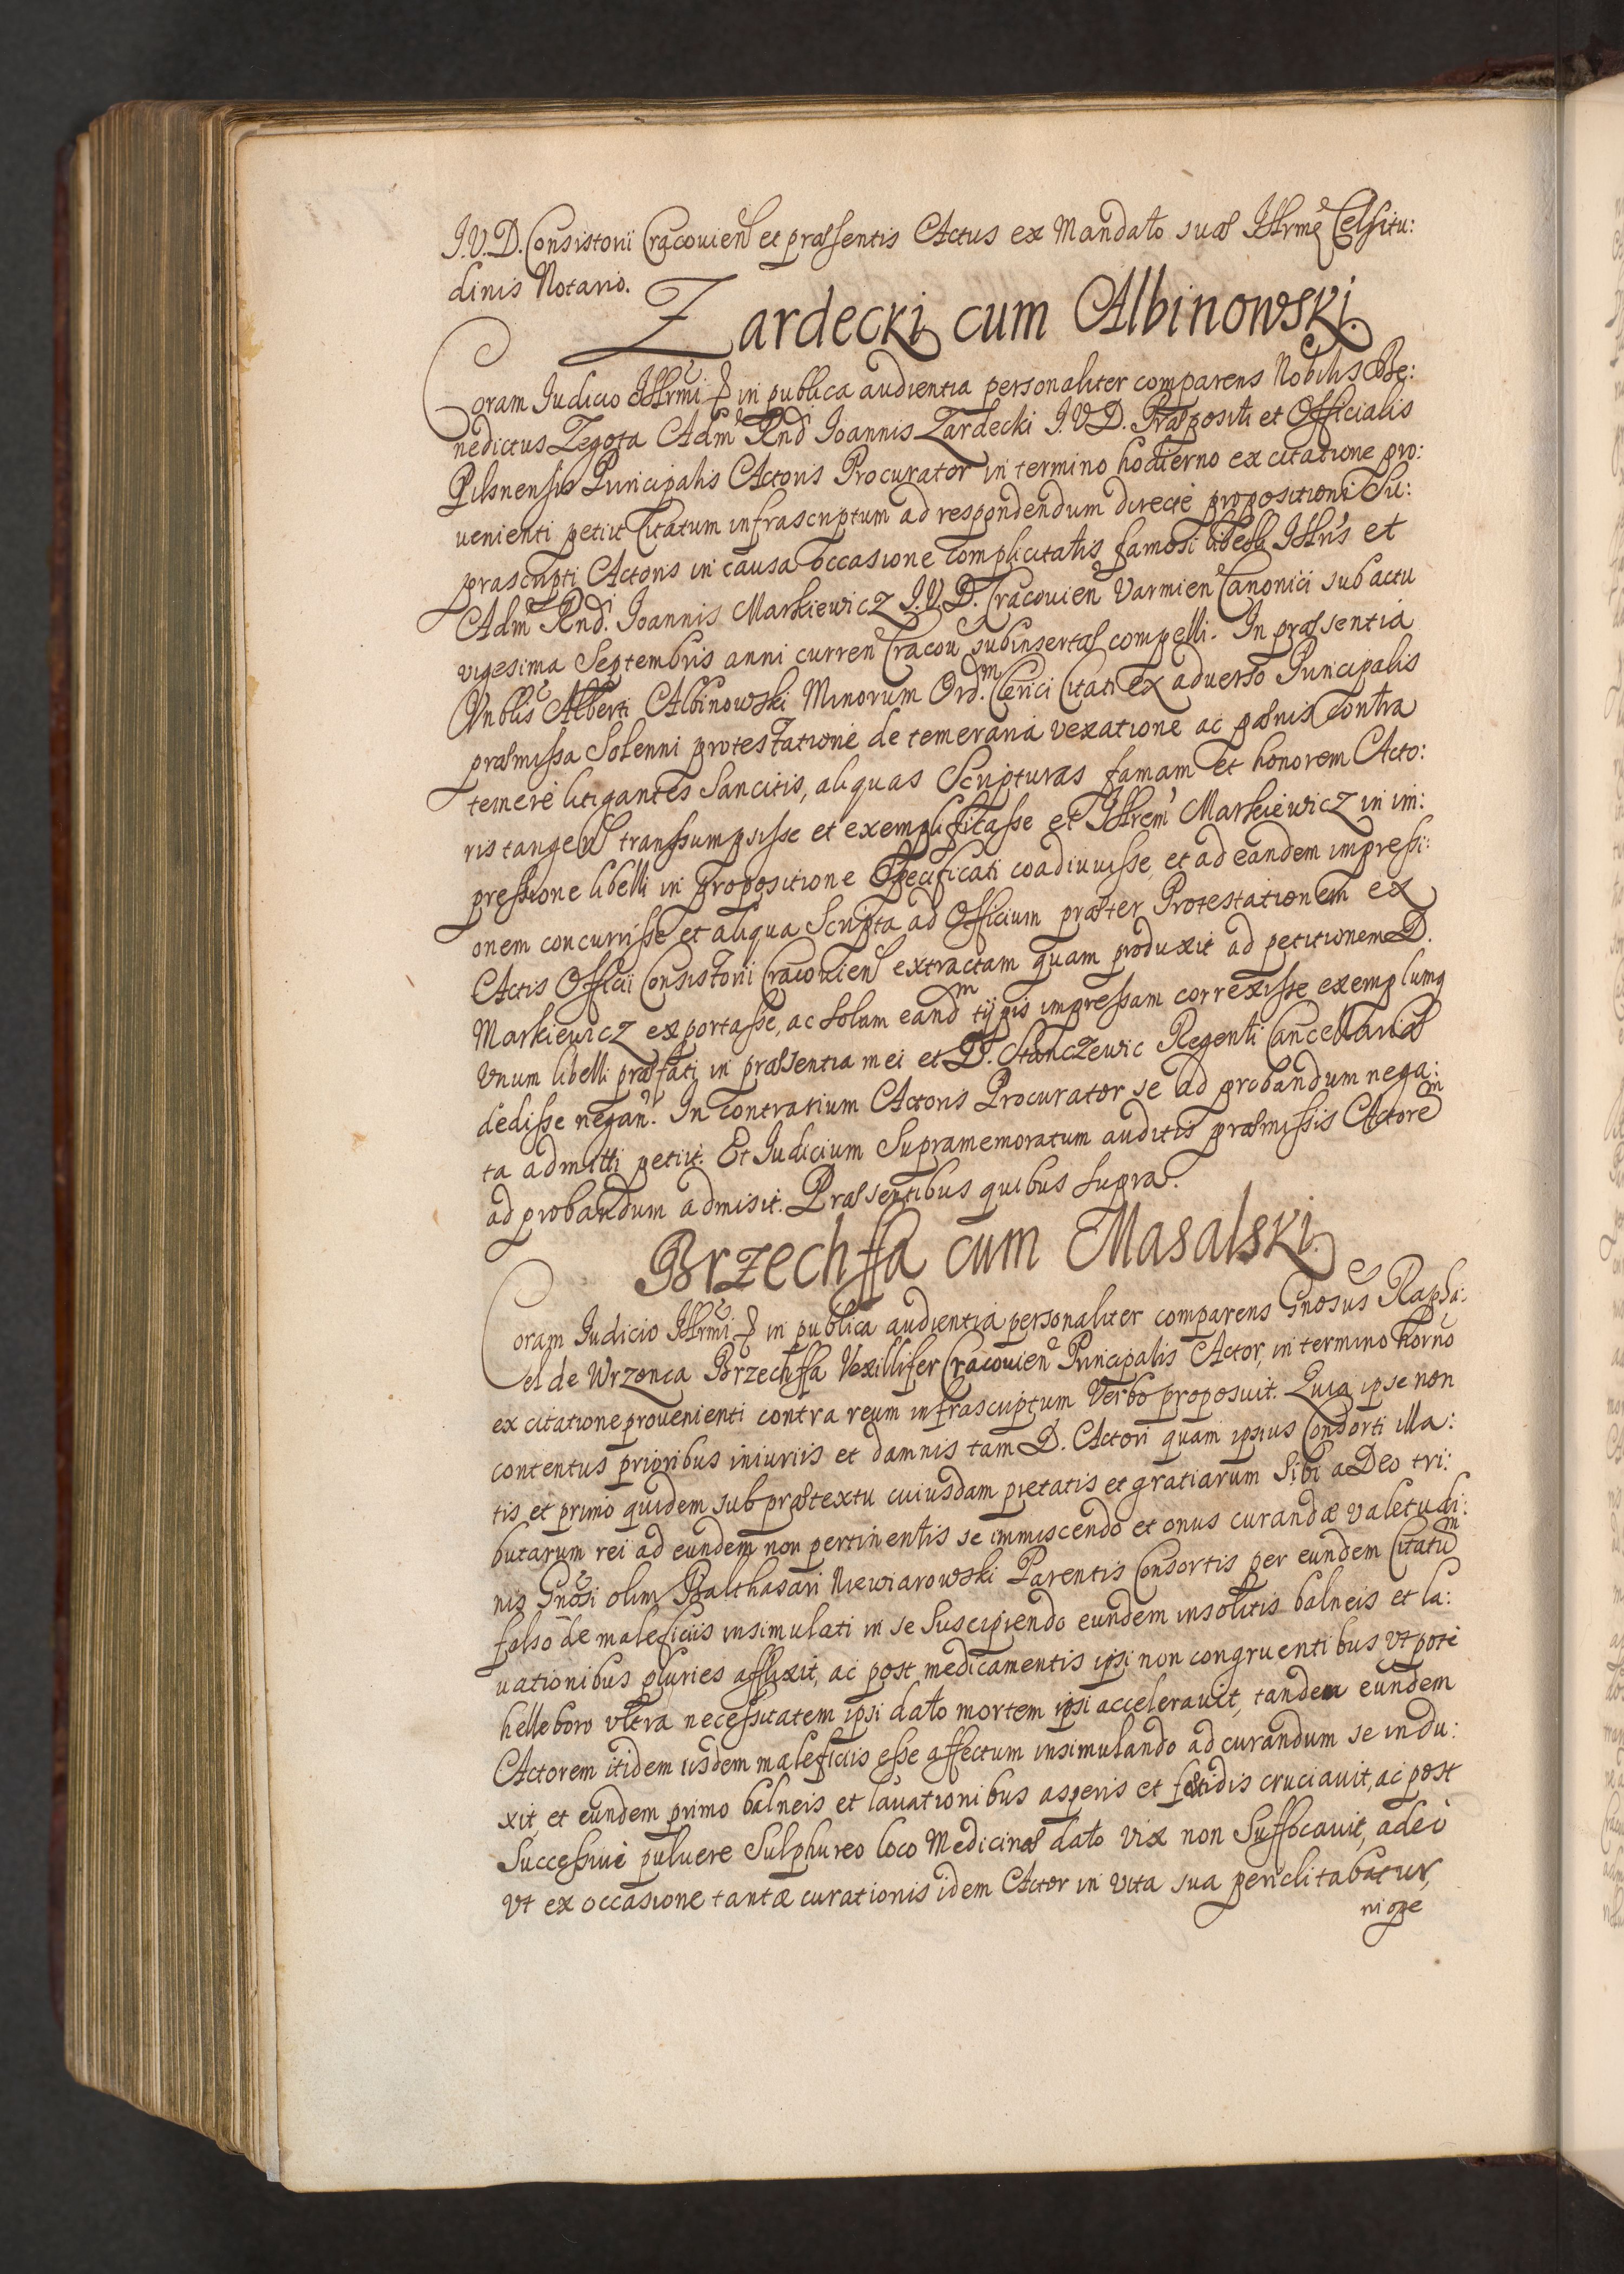 I.V.D. Consistorii Cracovien et præsentis Actus ex Mandato suæ Illrme Celsitu:
dinis Notario.
Zardecki cum Albinowski.
Coram Iudicio Illrmi in publica audientia personaliter comparens Nobilis Be:
nedictus Zegota Adm Rnd Ioannis Zardecki I.V.D. Præpositi et Officialis
Pilsnensis Principalis Actoris Procurator in termino hodierno ex citatione pro:
uenienti petiit Citatum infrascriptum ad respondendum directe propositioni Su:
prascripti Actoris in causa occasione complicitatis famosi libelli Illris et
Adm Rnd. Ioannis Markiewicz I.V.D. Cracouien Varmien Canonici sub actu
vigesima Septembris anni curren Cracou subinsertæ compelli. In præsentia
Vnblis Alberti Albinowski Minorum Ord. Clerici Citati ex aduerso Principalis
præmissa Solenni protestatione de temeraria vexatione ac pænis contra
temere litigantes Sancitis, aliquas Scripturas famam et honorem Acto:
ris tangen transsumpsisse et exemplificasse et Illrem Markiewicz in im:
pressione libelli in propositione Specificati coadiuuisse, et ad eandem impressi:
onem concurrisse et aliqua Scripta ad Officium præter Protestationem ex
Actis Officii Consistorii Cracouien extractam quam produxit ad petitionem D.
Markiewicz exportasse, ac solum eand m typis impressam correxisse exemplumq
Vnum libelli præfati in præsentia mei et D. Stanczewic Regenti Cancellariæ
dedisse negan. In contrarium Actoris Procurator se ad probandum nega:
ta admitti petiit. Et Iudicium Supramemoratum auditis præmissis Actorem
ad probandum admisit. Præsentibus quibus supra.
Brzechffa cum Masalski.
Coram Iudicio Illrmi in publica audientia personaliter comparens Gnosus Rapha:
el de Wrzonca Brzechffa Vexillifer Cracouien Principalis Actor, in termino horno
ex citatione prouenienti contra reum infrascriptum Verbo proposuit. Quia ipse non
contentus prioribus iniuriis et damnis tam D. Actori quam ipsius Consorti illa:
tis et primo quidem sub prætextu cuiusdam pietatis et gratiarum Sibi a Deo tri:
butarum rei ad eundem non pertinentis se immiscendo et onus curandæ valetudi:
nis Gnosi olim Balthasari Niewiarowski Parentis Consortis per eundem Citatum
falso de maleficiis insimulati in se Suscipiendo eundem insolitis balneis et la:
uationibus pluries afflixit, ac post medicamentis ipsi non congruentibus Vtpote
helleboro vltra necessitatem ipsi dato mortem ipsi accelerauit, tandem eundem
Actorem itidem iisdem maleficiis esse affectum insimulando ad curandum se indu:
xit, et eundem primo balneis et lauationibus asperis et fætidis cruciauit, ac post
Successiue puluere Sulphureo loco Medicinæ dato Vix non Suffocauit, adeo
Vt ex occasione tantæ curationis idem Actor in Vita sua periclitabatur,
ni ope